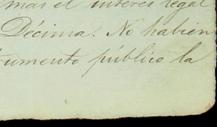 mas el interés legal
Décima. No habien
rumento público la